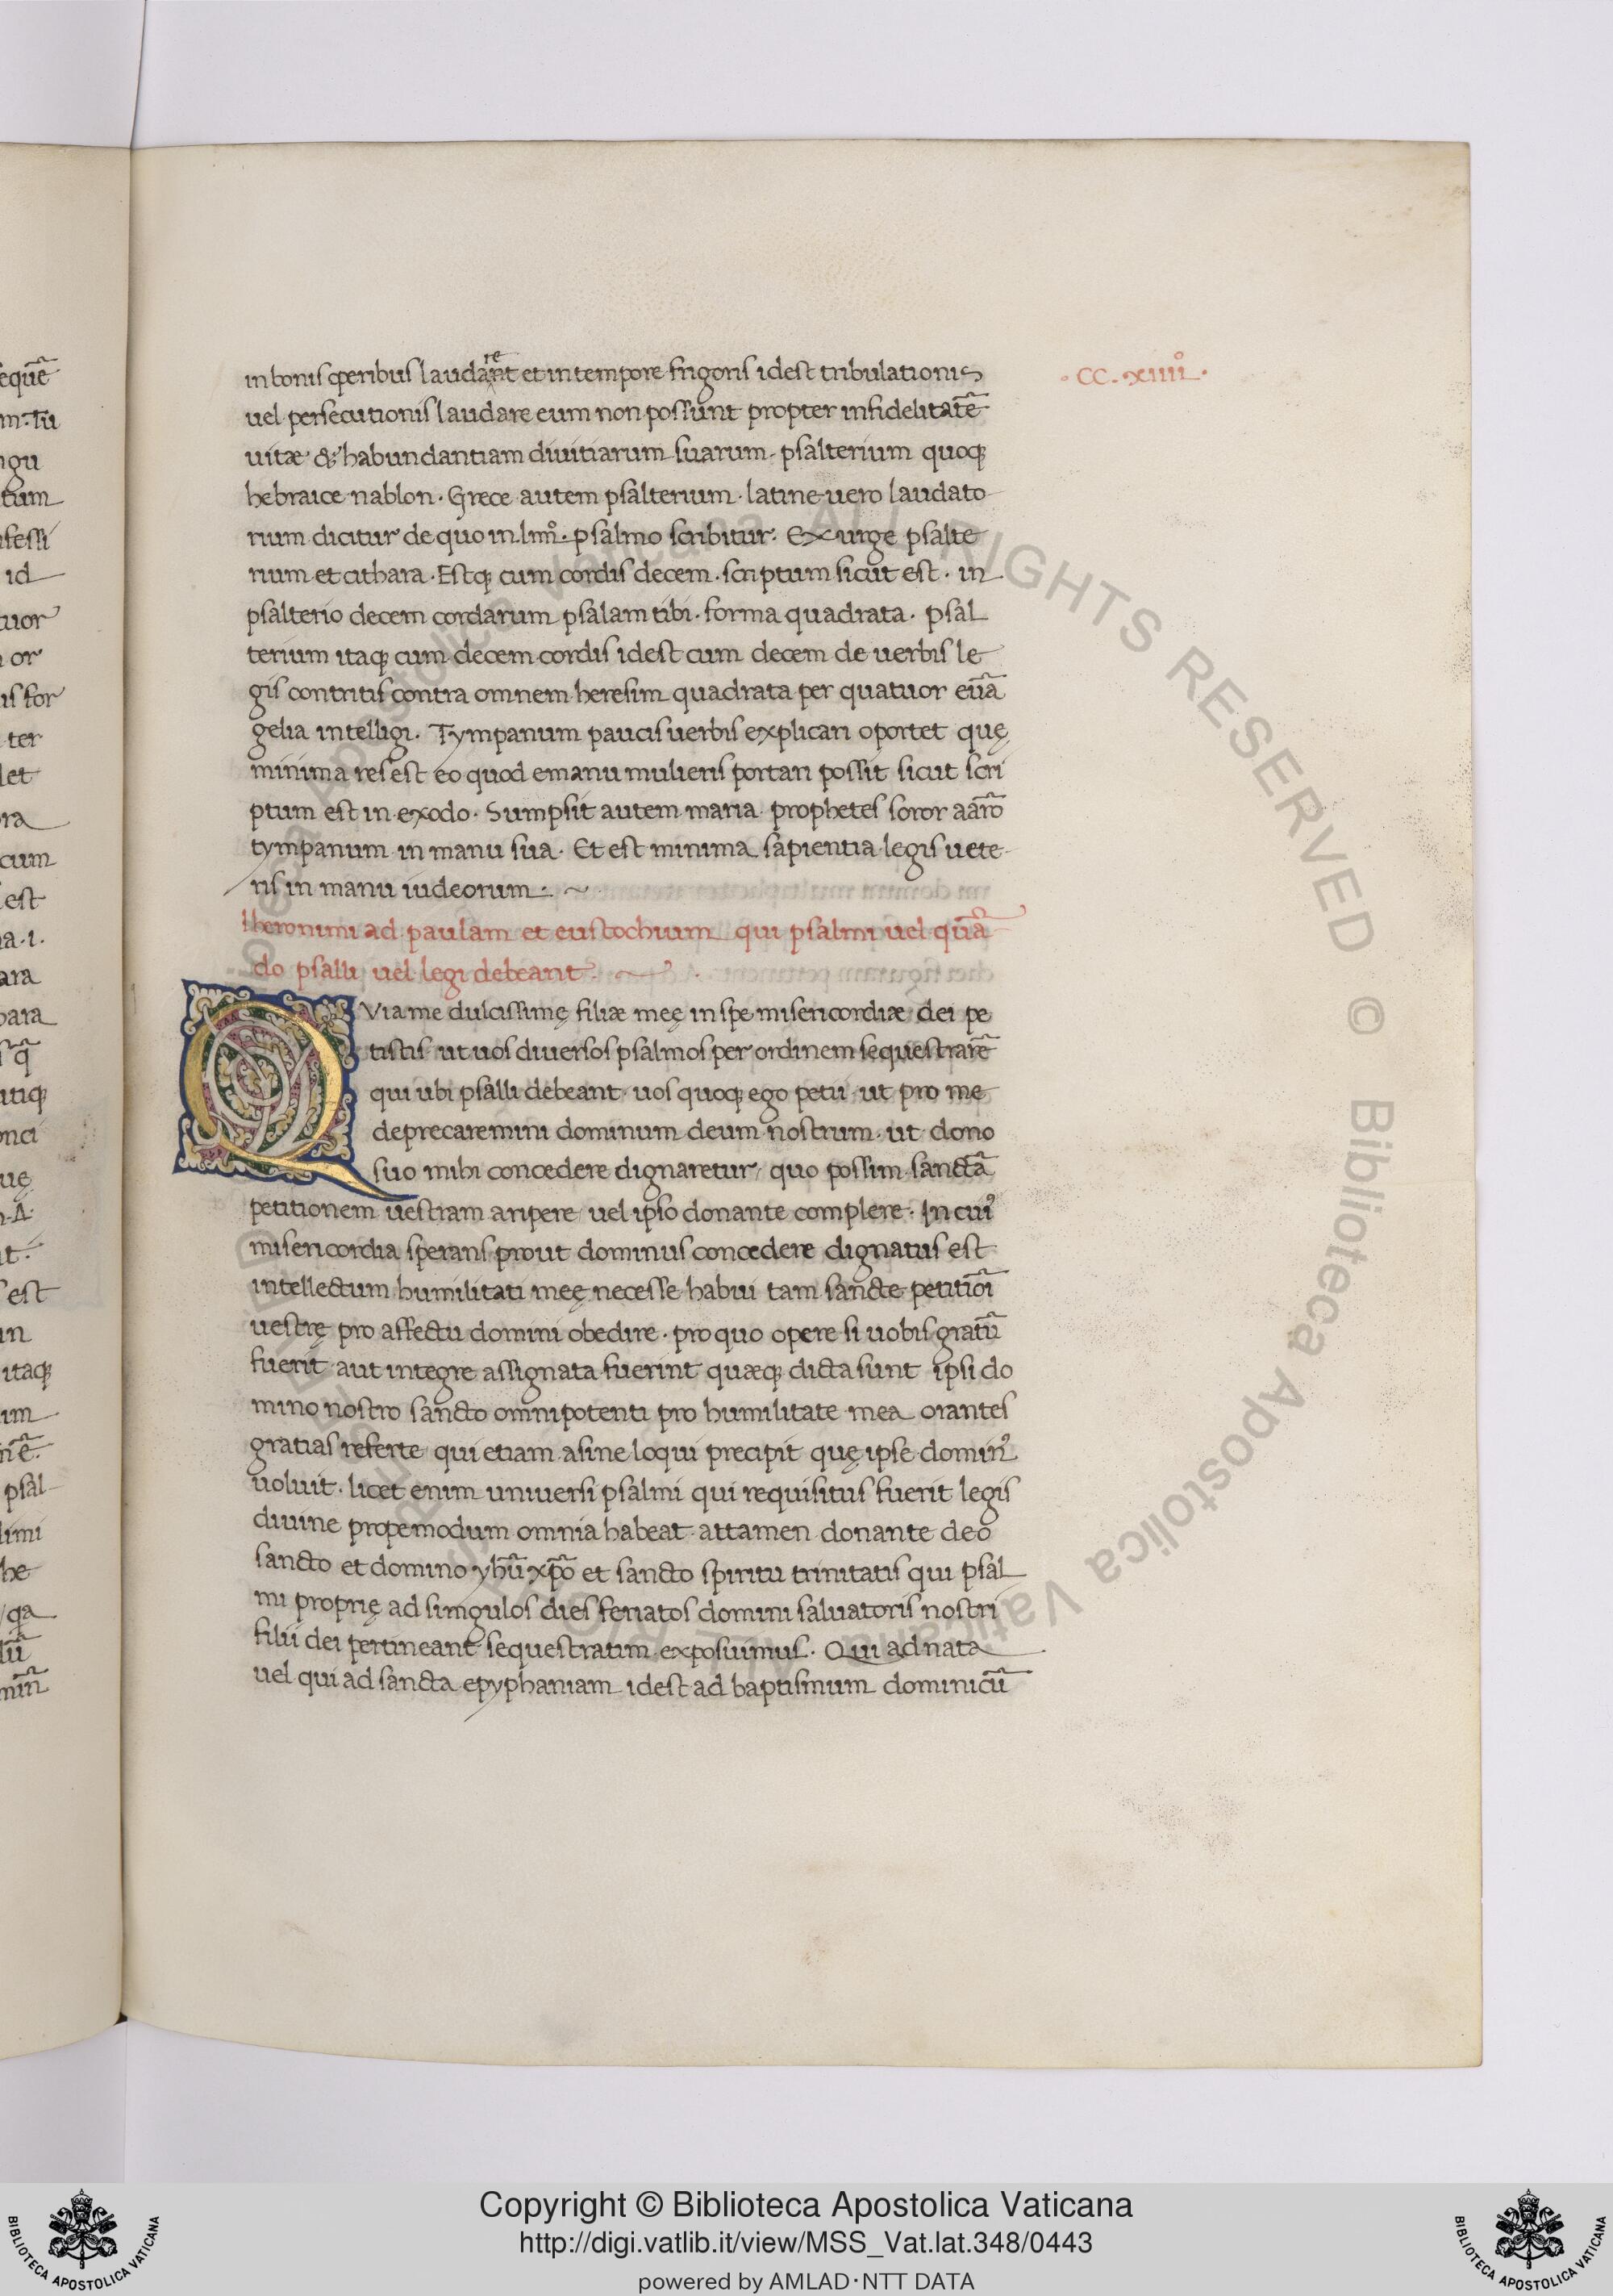 in bonis operibus laudarent et in tempore frigoris idest tribulationis
·CC·xiiii°·
uel persecutionis laudare eum non possunt propter infidelitatē
uitæ & habundantiam diuitiarum suarum. psalterium quoq;
hebraice nablon. Grece autem psalterium. latine uero laudato
rium dicitur de quo in psalmo scribitur. Exurge psalte
rium et cithara. Estq; cum cordis decem. scriptum sicut est. in
psalterio decem cordarum psalam tibi. forma quadrata. psal
terium itaq; cum decem cordis idest cum decem de uerbis le
gis contritis contra omnem heresim quadrata per quatuor euā
gelia intelligi. Tympanum paucis uerbis explicari oportet quę
minima res est eo quod e manu mulieris portari possit sicut scri
ptum est in exodo. Sumpsit autem maria prophetes soror aarō
tympanum in manu sua. Et est minima sapientia legis uete
ris in manu iudeorum. ~
Iheronimi ad paulam et eustochium qui psalmi uel quā
do psalli uel legi debeant.
QVia me dulcissimę filiæ meę in spe misericordiæ dei pe
tistis ut uos diuersos psalmos per ordinem sequestrarē
qui ubi psalli debeant. uos quoq; ego petii ut pro me
deprecaremini dominum deum nostrum. ut dono
suo mihi concedere dignaretur, quo possim sanctā
petitionem uestram aripere uel ipso donante complere. In cui9
misericordia sperans prout dominus concedere dignatus est
intellectum humilitati meę necesse habui tam sancte petitiōi
uestrę pro affectu domini obedire. pro quo opere si uobis gratū
fuerit aut integre assignata fuerint quæq; dicta sunt ipsi do
mino nostro sancto omnipotenti pro humilitate mea orantes
gratias referte qui etiam asine loqui precipit quę ipse domin9
uoluit. licet enim uniuersi psalmi qui requisitus fuerit legis
diuine propemodum omnia habeat attamen donante deo
sancto et domino yhū xpō et sancto spiritu trinitatis qui psal
mi proprię ad singulos dies feriatos domini saluatoris nostri
filii dei pertineant sequestratim exposuimus. Qui ad nata
uel qui ad sancta epyphaniam idest ad baptismum dominicū
Copyright © Biblioteca Apostolica Vaticana
http://digi.vatlib.it/view/MSS_Vat.lat.348/0443
powered by AMLAD·NTT DATA